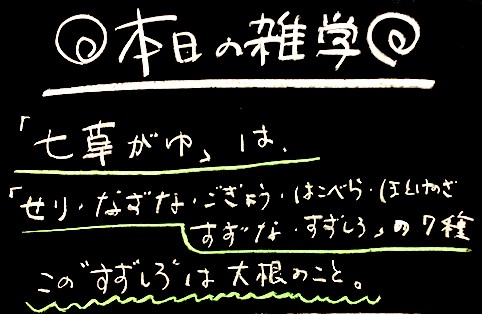 本日の雑学
「七草がゆ」は、
「せり・なずな・ごぎょう・はこべら・ほとけのざ
すずな・すずしろ」の7種
この"すずしろ"は大根のこと。